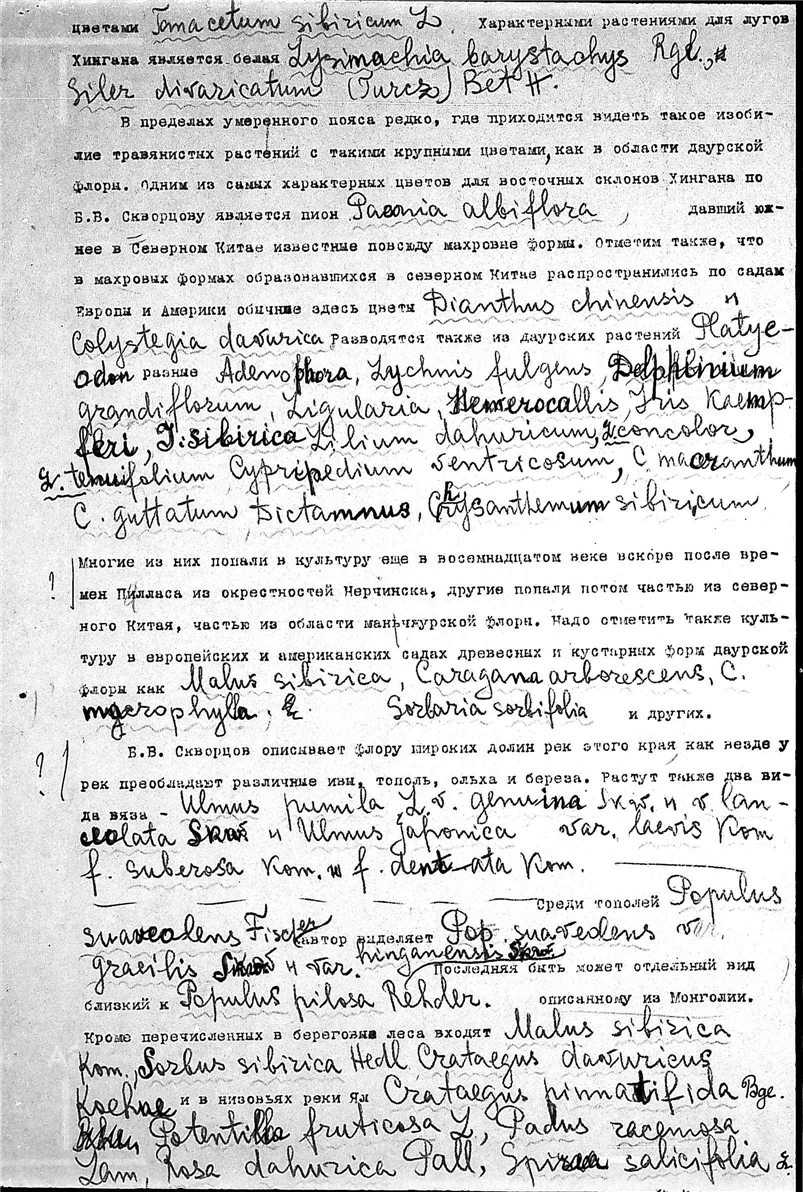 цветами Tanacetum sibiricum L Характерными растениями для лугов
Хингана является белая Lysimachia barystachys Rgl., и
Siler divaricatum (Turcz) Bet H.
В пределах умеренного пояса редко, где приходится видеть такое изоби-
лие травянистых растений с такими крупными цветами, как в области даурской
флоры. Одним из самых характерных цветов для восточных склонов Хингана по
Б.В. Скворцову является пион Paeonia albiflora, давший юж-
нее в Северном Китае известные повсюду махровые формы. Отметим также, что
в махровых формах образовавшихся в северном Китае распространились по садам
Европы и Америки обычные здесь цветы Dianthus chinensis и
Colystegia davurica Разводятся также из даурских растений Platyc-
odon разные Adenophora, Lychnis fulgens, Delphinium
grandiflorum, Ligularia, Hemerocallis, Iris Kaemp-
feri, J. sibirica Lilium dahuricum, L. concolor,
L. tenuifolium Cypripedium ventricosum, C macranthum
C. guttatum Dictamnus, Chrysanthemum sibiricum.
Многие из них попали в культуру еще в восемнадцатом веке вскоре после вре-
? мен Палласа из окрестностей Нерчинска, другие попали потом частью из север-
ного Китая, частью из области манчжурской флоры. Надо отметить также куль-
туру в европейских и американских садах древесных и кустарных форм даурской
флоры как Malus sibirica, Caragana arborescens, C.
microphylla, Sorbaria sorbifolia и других.
Б.В. Скворцов описывает флору широких долин рек этого края как везде у
? рек преобладают различные ивы, тополь, ольха и береза. Растут также два ви-
да вяза - Ulmus pumila L. v. genuina Skv. и v. lan-
ceolata Skv и Ulmus japonica var. laevis Kom
f. suberosa Kom. и f. dentata Kom.
Среди тополей Populus
suaveolens Fischer автор выделяет Pop suaveolens var.
gracilis Skv и var. hinganensis Skv. Последняя быть может отдельный вид
близкий к Populus pilosa Rehder. описанному из Монголии.
Кроме перечисленных в береговые леса входят Malus sibirica
Kom., Sorbus sibirica Hedl Crataegus davuricus
Koehne и в низовьях реки Ял Crataegus pinnatifida Bge.
Potentilla fruticosa L, Padus racemosa
Lam, Rosa dahurica Pall, Spiraea salicifolia L.